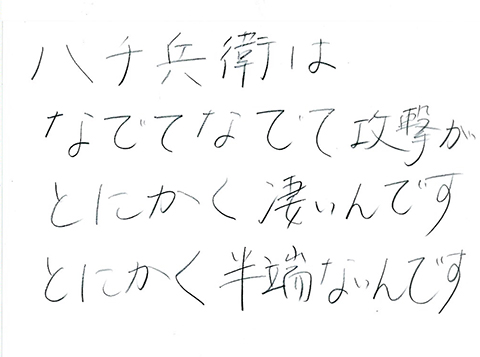 ハチ兵衛は
なでてなでて攻撃が
とにかく凄いんです
とにかく半端ないんです